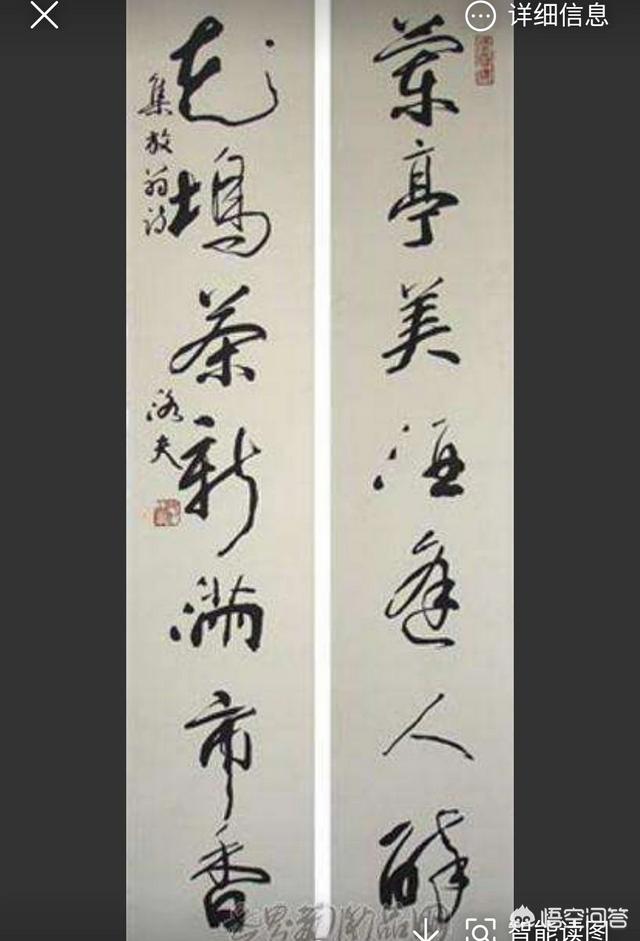 详细信息
蘭亭美酒逢人醉
花塢茶新滿市香
集放翁詩
洛夫
悟空问答
智能读图